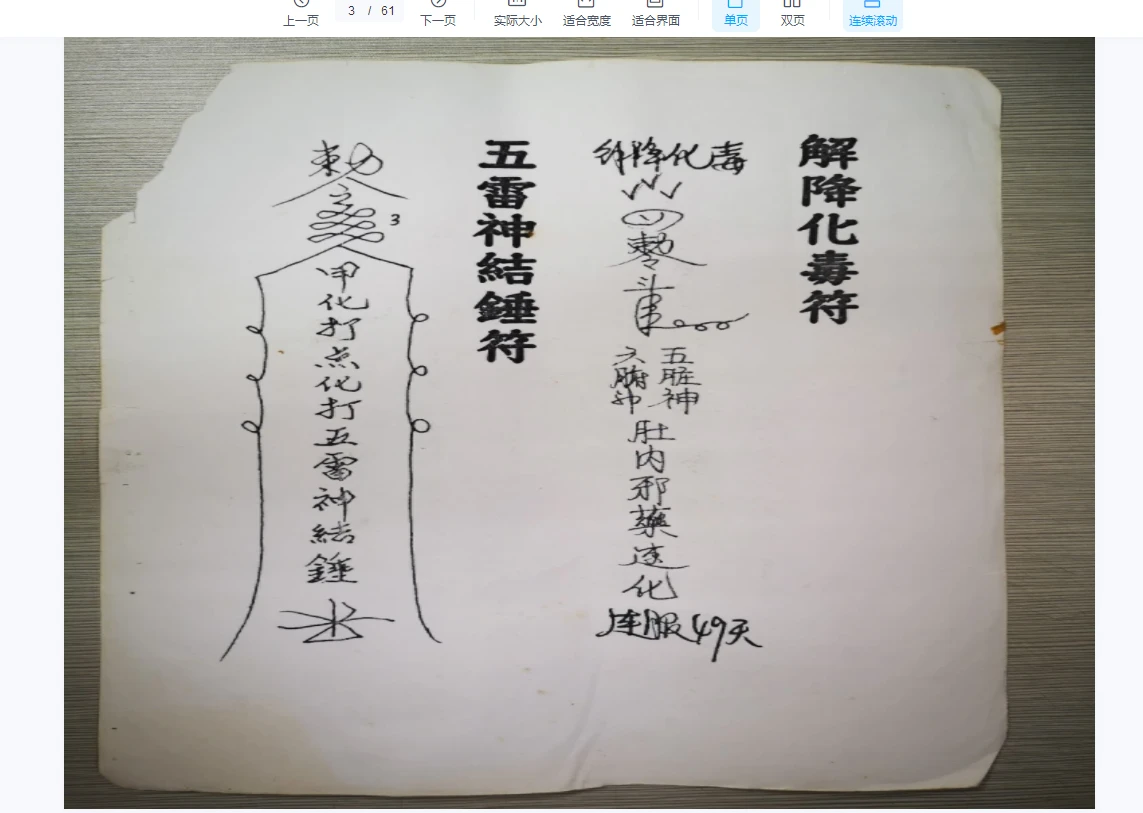 上一页
3 / 61
下一页
实际大小
适合宽度
适合界面
单页
双页
连续滚动
解降化毒符
解降化毒
五脏神
六腑神
肚内邪藥速化
连服49天
五雷神結錘符
勅
3
化打点化打五雷神結錘